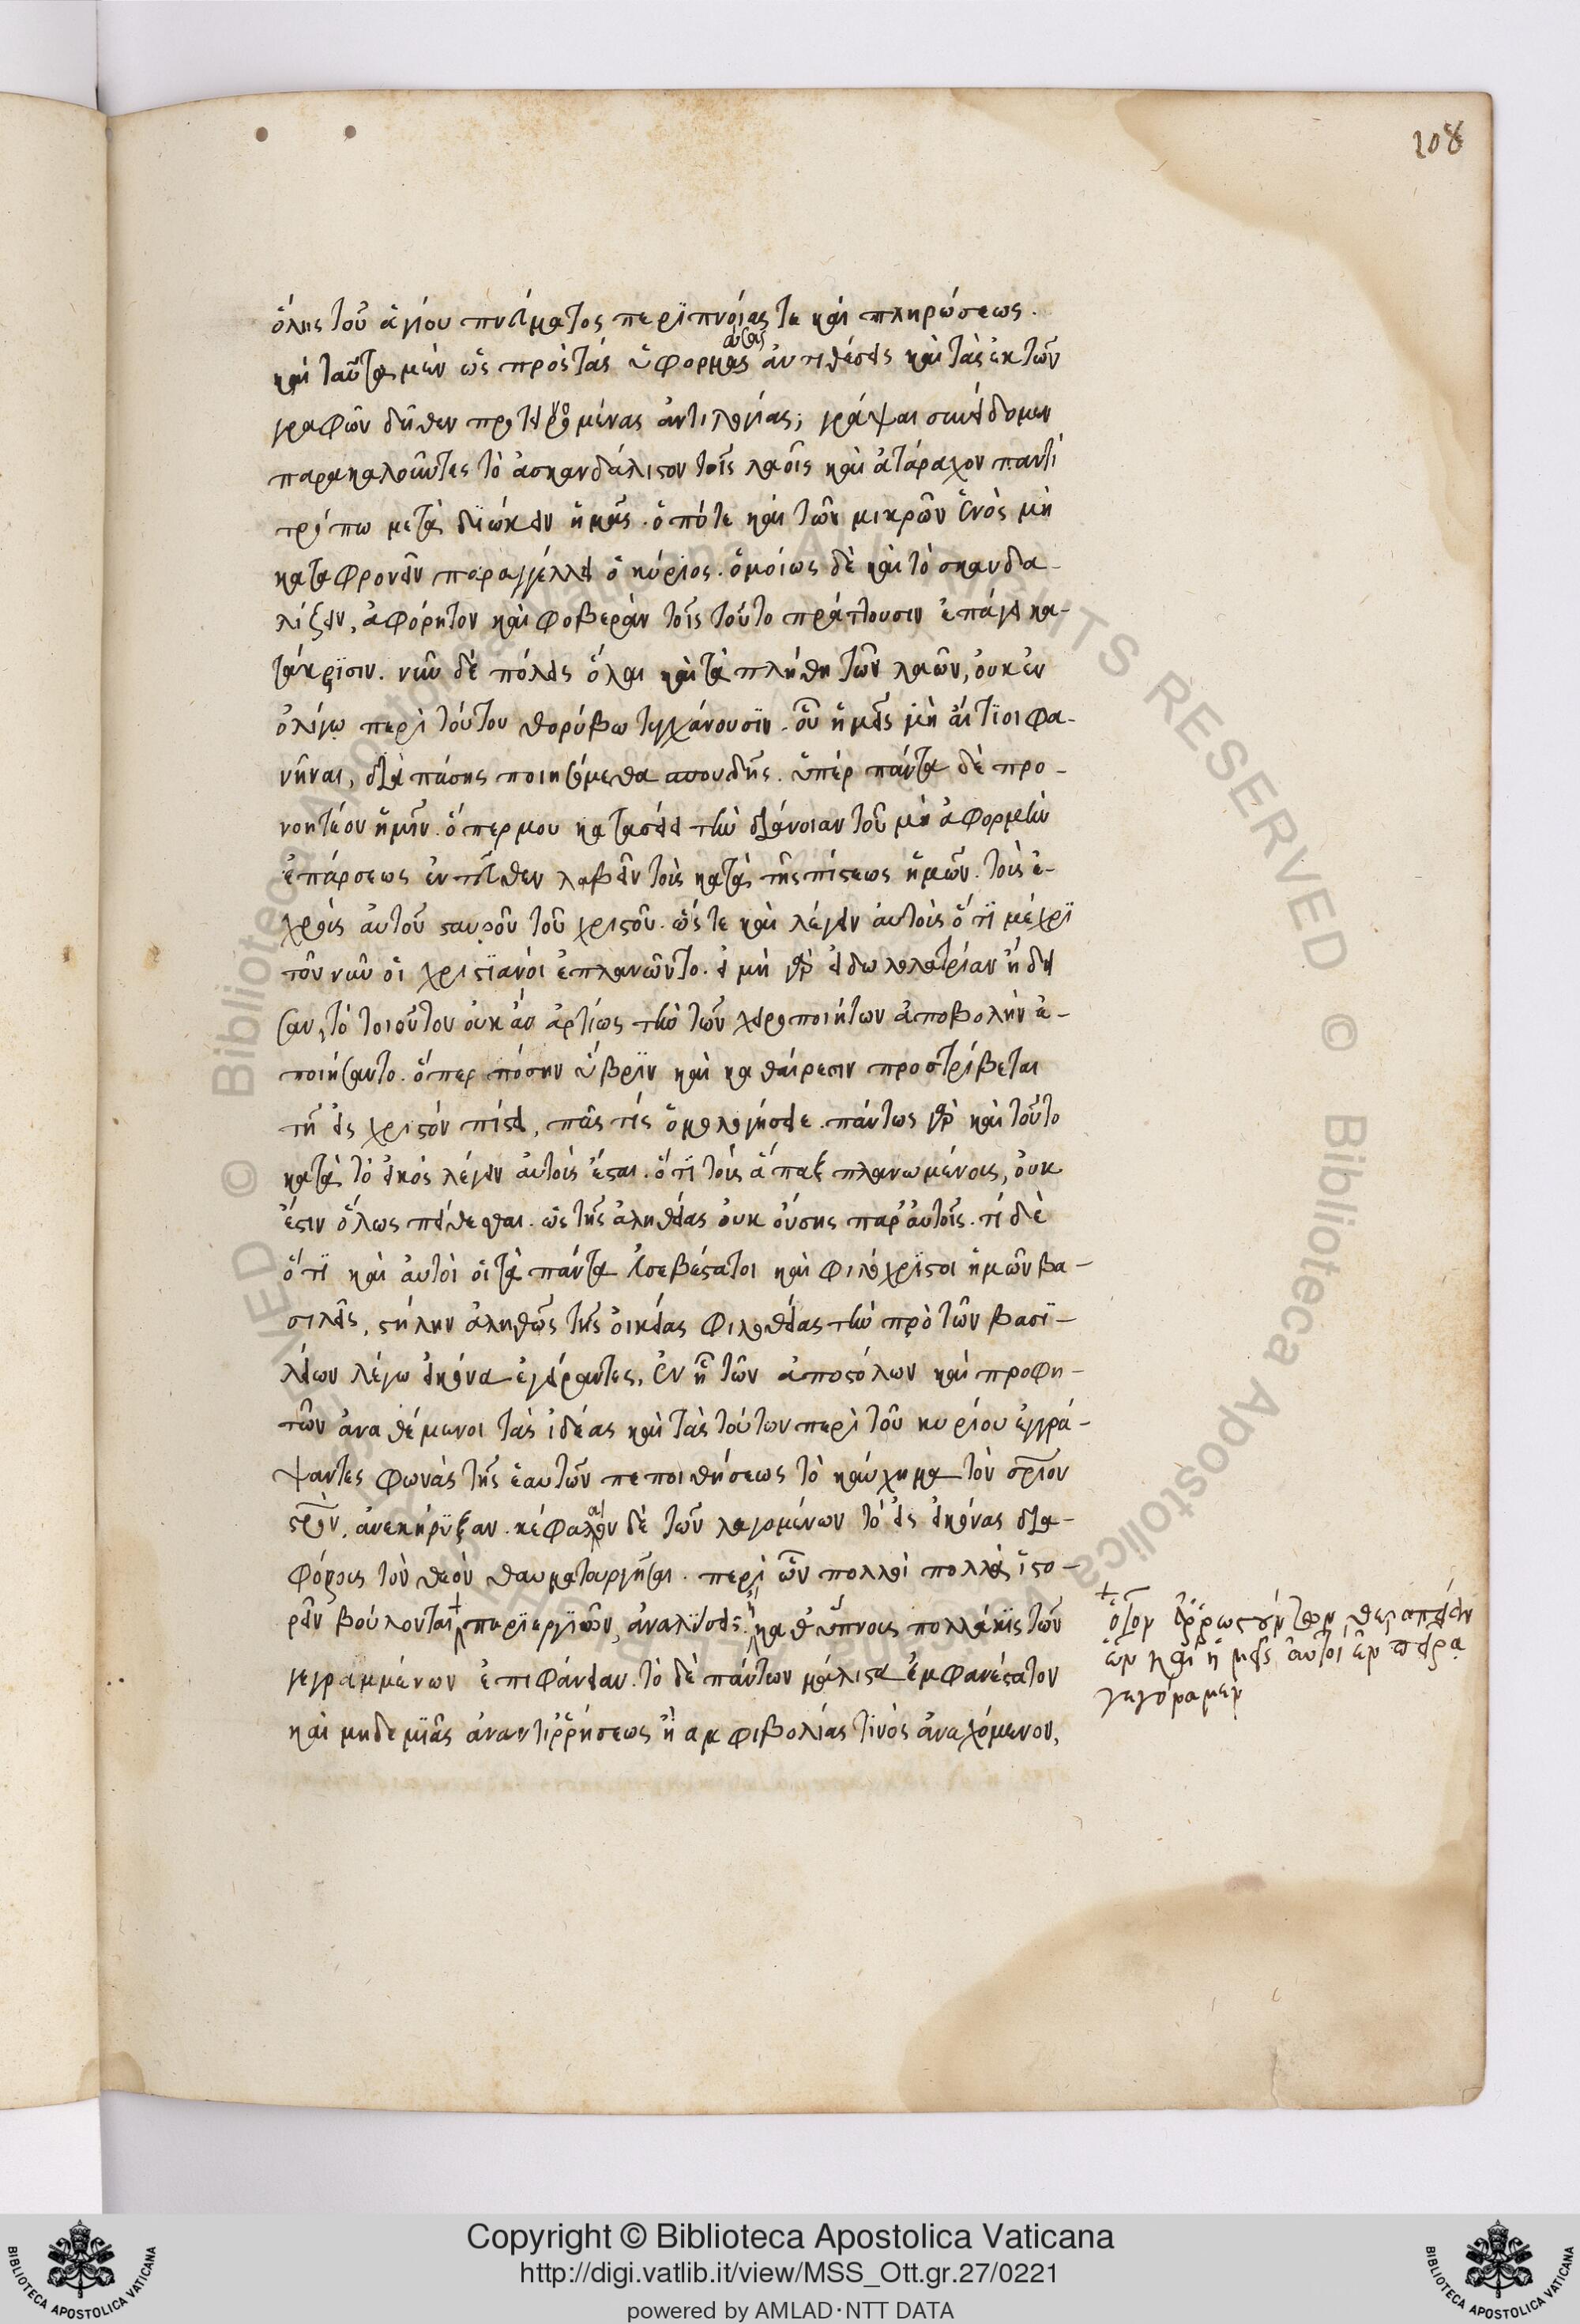 108
ὅλης τοῦ ἁγίου πνεύματος περϊπνοίας τε καὶ πληρώσεως.
καὶ ταῦτα μὲν ὡς πρὸς τὰς ὑφορμας αυσας ἀντιθέσεις καὶ τὰς ἐκ τῶν
γραφῶν δῆθεν προτειρομένας ἀντιλογίας; γράψαι σπεύδομεν
παρακαλοῦντες τὸ ἀσκανδάλιστον τοῖς λαοῖς καὶ ἀτάραχον παντὶ
τρόπω μετὰ διώκειν ἡμᾶς. ὁπότε καὶ τῶν μικρῶν ἑνὸς μὴ
καταφρονεῖν παραγγέλλει ὁ κύριος. ὁμοίως δὲ καὶ τὸ σκανδα-
λίζειν, ἀφόρητον καὶ φοβερὰν τοῖς τοῦτο πράττουσιν ἐπάγει κα-
τάκρϊσιν. νῦν δὲ πόλεις ὅλαι καὶ τὰ πλήθη τῶν λαῶν, οὐκ ἐν
ὀλίγω περὶ τούτου θορύβω τυγχάνουσϊν. οὗ ἡμεῖς μὴ αἴτϊοι φα-
νῆναι, διὰ πάσης ποιησόμεθα σπουδῆς. ὑπὲρ πάντα δὲ προ-
νοητέον ἡμῖν. ὅπερ μου κατασείει τὴν διάνοιαν τοῦ μὴ ἀφορμὴν
ἐπάρσεως ἐντεῦθεν λαβεῖν τοὺς κατὰ τῆς πίστεως ἡμῶν. τοὺς ἐ-
χθροὺς αὐτοῦ σταυροῦ τοῦ χριστοῦ. ὥστε καὶ λέγειν αὐτοὺς ὅτϊ μέχρϊ
τοῦ νῦν οἱ χριστϊανοὶ ἐπλανῶντο. εἰ μὴ γὰρ εἰδωλολατρίαν ἤδει
σαν, τὸ τοιοῦτον οὐκ ἂν ἀρτίως τὴν τῶν χειροποιήτων ἀποβολὴν ἐ-
ποιήσαντο. ὅπερ πόσην ὕβρϊν καὶ καθαίρεσιν προστρίβεται
τῆ εἰς χριστόν πίστει, πᾶς τίς ὁμολογήσειε. πάντως γὰρ καὶ τοῦτο
κατὰ τὸ εἰκὸς λέγειν αὐτοὺς ἔσται. ὅτϊ τοὺς ἅπαξ πλανωμένοις, οὐκ
ἔστιν ὅλως πείθεσθαι. ὡς τῆς ἀληθείας οὐκ οὔσης παρ' αὐτοῖς. τί δὲ
ὅτϊ καὶ αὐτοὶ οἱ τὰ πάντα εὐσεβέστατοι καὶ φιλόχρϊστοι ἡμῶν βα-
σιλεῖς, στήλην ἀληθῶς τῆς οἰκείας φιλοθεΐας τὴν πρὸ τῶν βασϊ-
λείων λέγω εἰκόνα ἐγείραντες, ἐν ᾗ τῶν ἀποστόλων καὶ προφη-
τῶν ἀναθέμενοι τὰς ἰδέας καὶ τὰς τούτων περὶ τοῦ κυρίου ἐγγρά-
ψαντες φωνὰς τῆς ἑαυτῶν πεποιθήσεως τὸ καύχημα τὸν σριον
στρον, ἀνεκήρϋξαν. κεφάλαιον δὲ τῶν λεγομένων τὸ εἰς εἰκόνας δια-
φόροις τὸν θεὸν θαυματουργῆσαι. περὶ ὧν πολλοὶ πολλὰ ἱστο-
ρεῖν βούλονται, περϊεργϊῶν, ἀναλύσεις. ἢ καθ' ὕπνους πολλάκϊς τῶν
γεγραμμένων ἐπιφάνειαν. τὸ δὲ πάντων μάλιστα ἐμφανέστατον
καὶ μηδεμϊᾶς ἀναντιῤῥήσεως ἢ αμφιβολίας τϊνὸς ἀνεχόμενον,
οἷον ἀῤῥωστούντων θεραπείαν
ὧν καὶ ἡμεῖς αὐτοὶ ἐν πείρα
γεγόναμεν
Copyright © Biblioteca Apostolica Vaticana
http://digi.vatlib.it/view/MSS_Ott.gr.27/0221
powered by AMLAD·NTT DATA